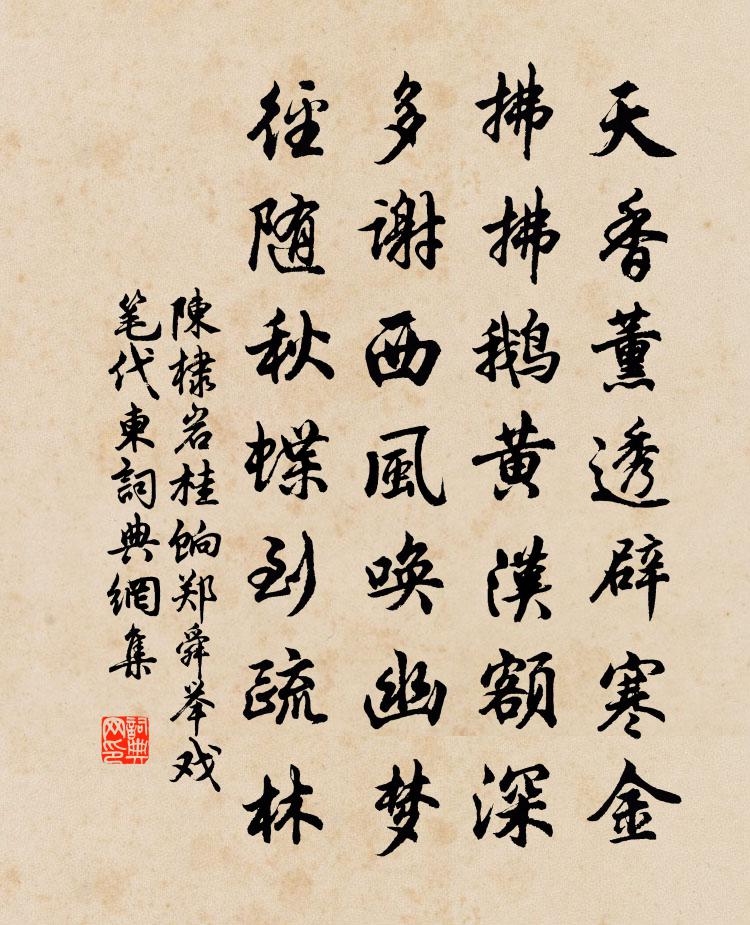 天香薰透辟寒金
拂拂鹅黄漠额深
多谢西風唤幽梦
徑随秋蝶到疏林
陳棣岩桂饷郑舜举戏
笔代東詞典網集
詞典
网印